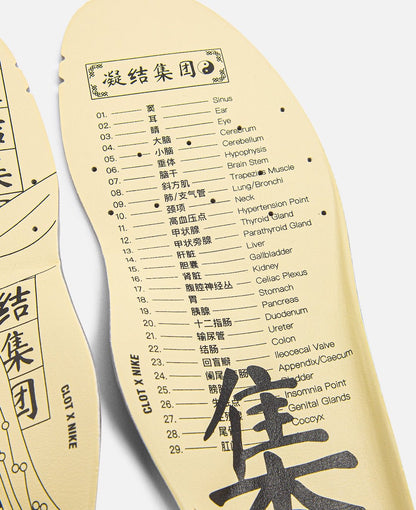 凝结集团
01. 窦 Sinus
02. 耳 Ear
03. 睛 Eye
04. 大脑 Cerebrum
05. 小脑 Cerebellum
06. 垂体 Hypophysis
07. 脑干 Brain Stem
08. 斜方肌 Trapezius Muscle
09. 肺/支气管 Lung/Bronchi
10. 颈项 Neck
11. 高血压点 Hypertension Point
12. 甲状腺 Thyroid Gland
13. 甲状旁腺 Parathyroid Gland
14. 肝脏 Liver
15. 胆囊 Gallbladder
16. 肾脏 Kidney
17. 腹腔神经丛 Celiac Plexus
18. 胃 Stomach
19. 胰腺 Pancreas
20. 十二指肠 Duodenum
21. 输尿管 Ureter
22. 结肠 Colon
23. 回盲瓣 Ileocecal Valve
24. 阑尾 Appendix/Caecum
25. 膀
26. Insomnia Point
27. Genital Glands
28. 尾 Coccyx
29. 肛
CLOT X NIKE
集
结
集
团
CLOT X NIKE